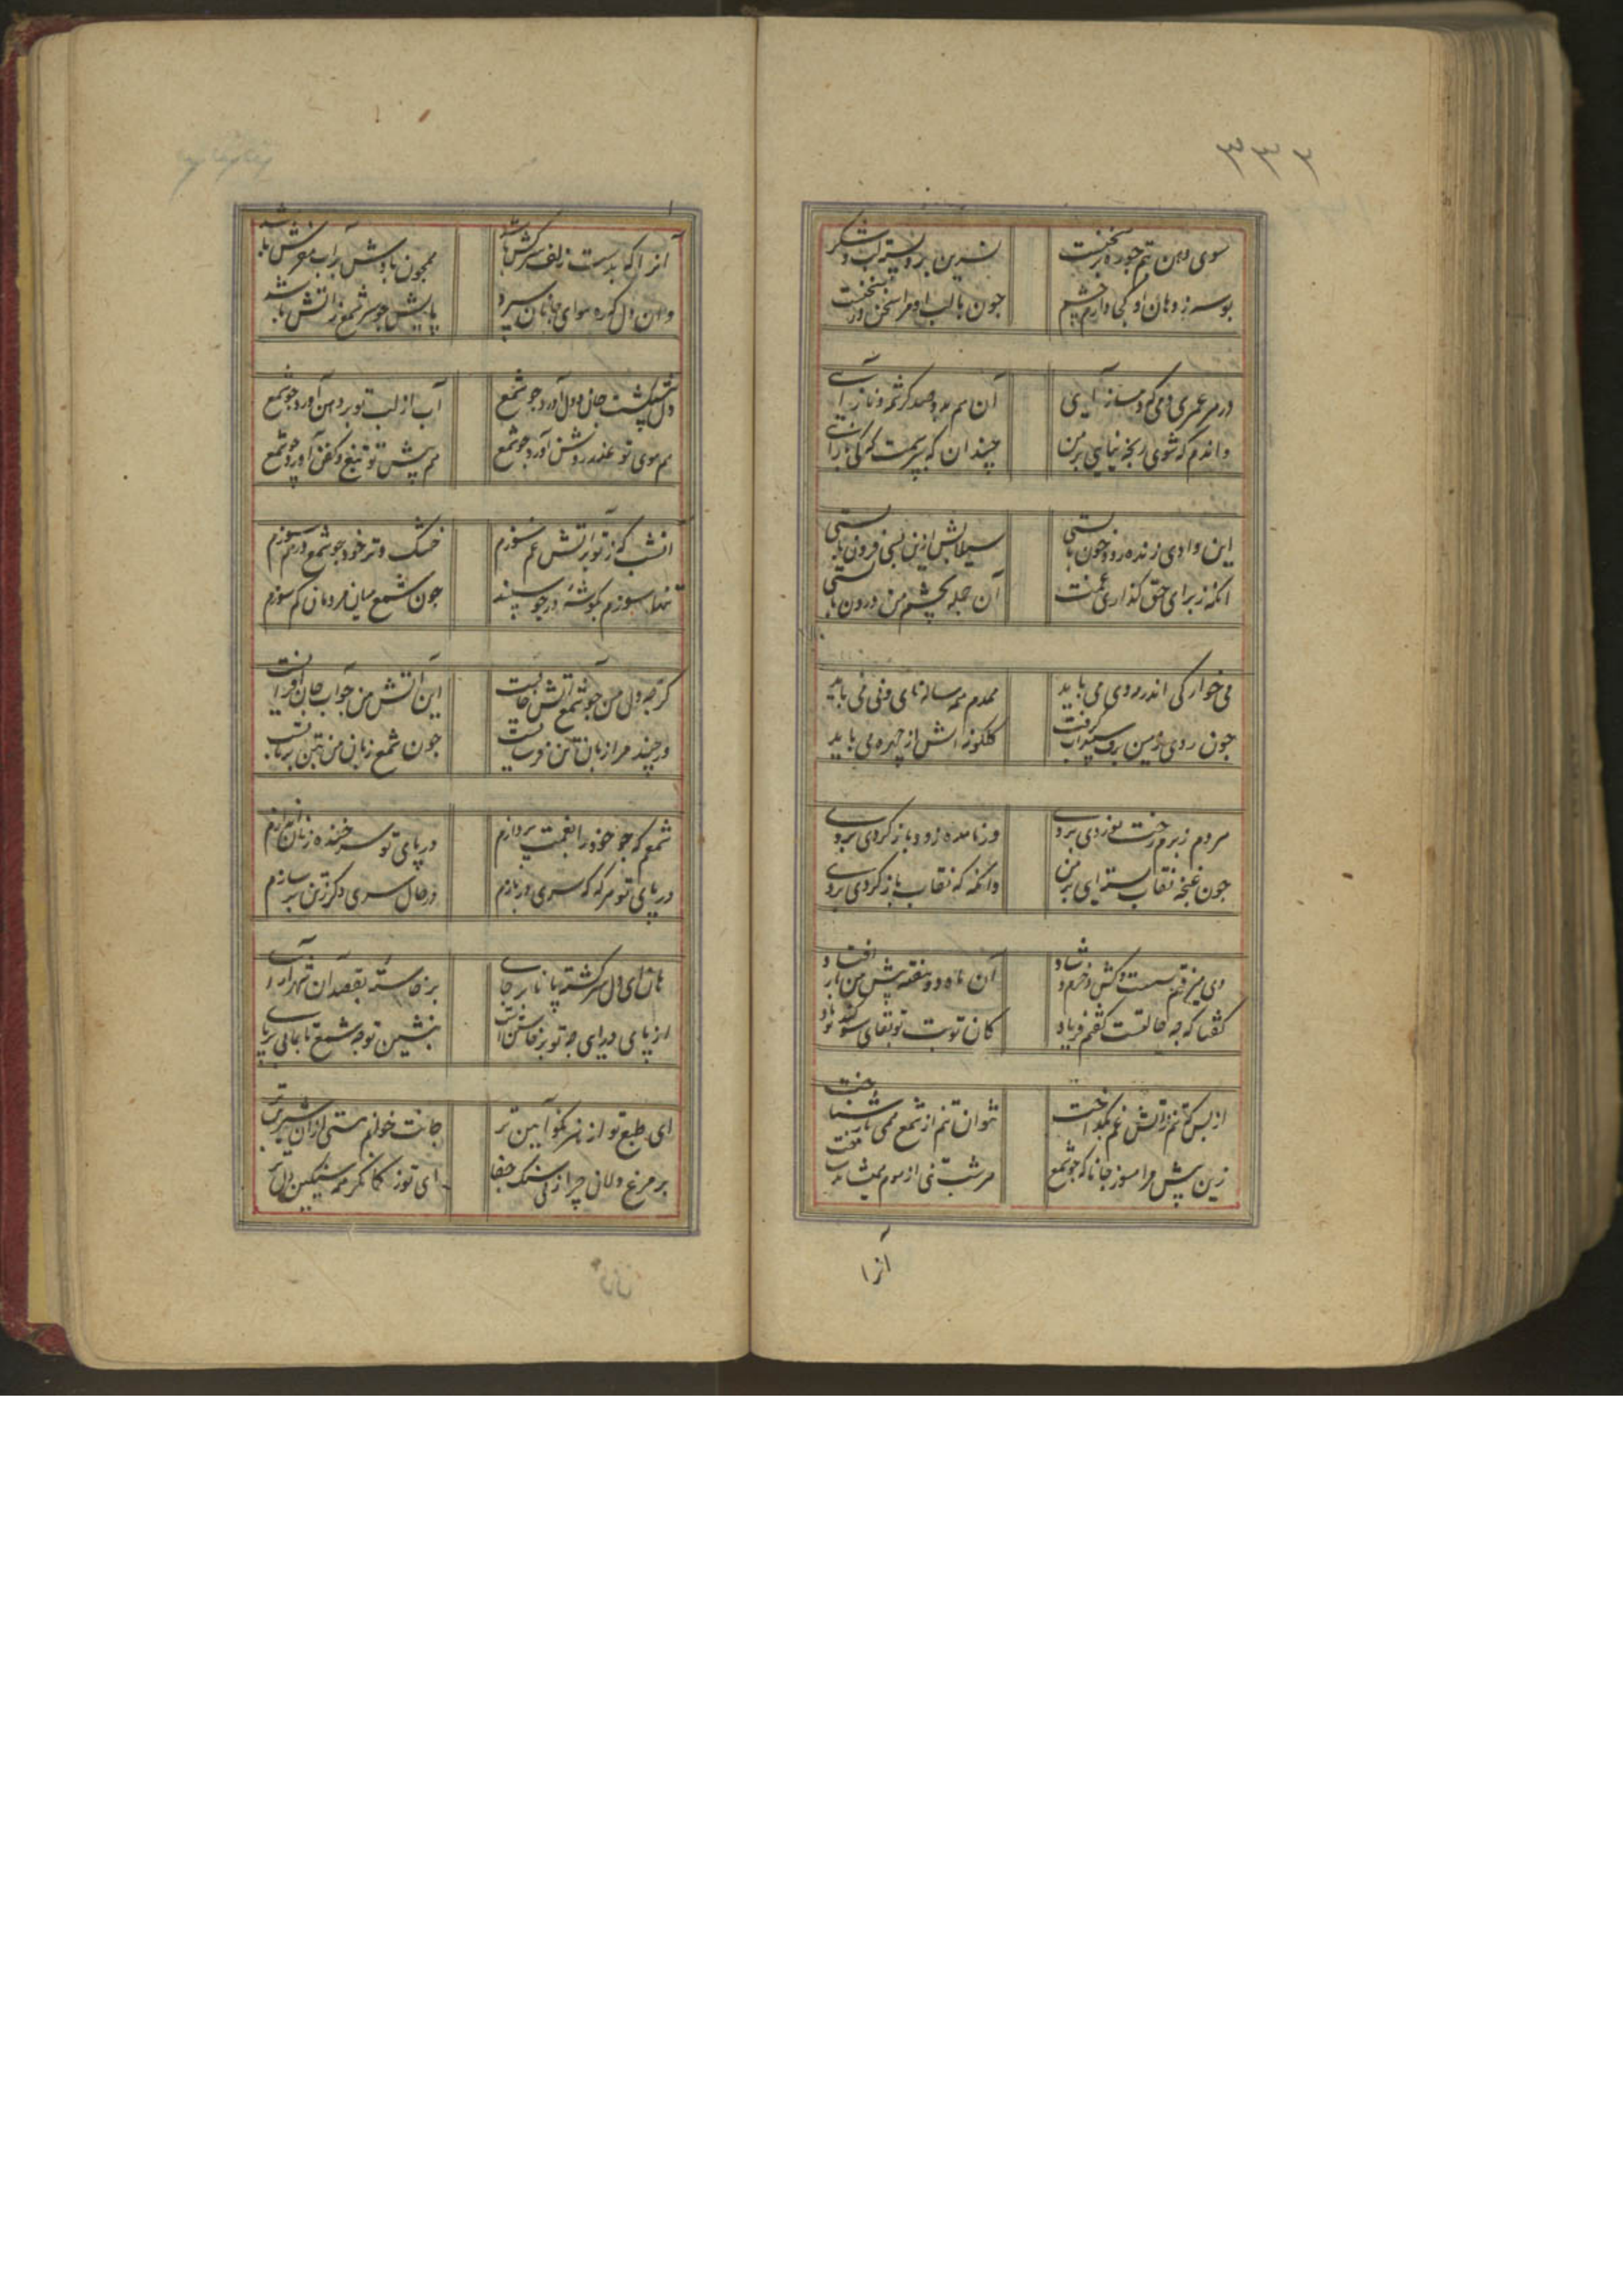 ۳۳۳
سوی دهن تنم چو ره سخنست
شیرین بر و پسته لب و شکر
بوسه ز دهان او کجا دارم چشم
چون با لب او مرا سخن در سخنست
در هر عمری دمی که دمساز آیی
آن هم بدو صد کرشمه و ناز آیی
واندم که شوی رنجه نیایی بر من
چندان که بپرسمت که کی باز آیی
این وادی زنده رود چون بایستی
سیلابش ازین بسی فزون بایستی
انکه ز برای حق گذاری غمت
آن جمله بچشم من درون بایستی
می خوارگی اندر دی می باید
همدم همه ساله نای و نی می باید
چون روی زمین برف سپیداب گرفت
گلگونه اش از چهره می باید
مردم ز برم رخت بوردی بروی
ور نامده زود باز گردی بروی
چون غنچه نقاب بسته ای بر من
وانگه که نقاب باز کردی بروی
دی میرفتم مست و کش و خرم و شاد
آن ماه دو هفته پیش من باز افتاد
گفتا که چه حالتست گفتم فریاد
کان توبت توبهای سوگند تو باد
از بس که تنم ز آتش غم بگداخت
نتوان تنم از شمع همی باز شناخت
زین پیش مرا مسوز جانا که چو شمع
هر شب نی از موم نمیشاید
آنرا
آنرا که بدست زلف سرکش باشد
همچون بادش بر آب مفرش باشد
وان دل که ره سوای جانان سپرد
پایش چو سر شمع ز آتش باشد
دل پیشکشت جان و دل آورد چو شمع
آب از لب تو بر دهن آورد چو شمع
هم سوی تو عذر روشن آورد چو شمع
هم پیش تو تیغ و کفن آورد چو شمع
امشب که ز تو بر آتش غم سوزم
خشک و تر خود چو شمع در هم سوزم
تنها سوزم بگوشه در چو سپند
چون شمع میان مردمان کم سوزم
گر چه دل من چو شمع آتش جانیست
این آتش من چو آب جان افزا نیست
ور چند مرا زبان تن فرسا نیست
چون شمع زبان من بتن بر تا نیست
شمعم که چو خود را بغمت پردازم
در پای تو سر خنده زنان اندازم
در پای تو هر گه که سری در بازم
در حال سری دگر ز تن بر سازم
هان ای دل سرگشته پا نابر جای
بر خاسته بقصد آن شهرآرای
از پای درای چه تو برخاستن است
بنشین تو چه شمع تا بمانی بر پای
ای طبع تو از هنر نکو آیین تر
جانت خوانم هستی از آن شیرین تر
بر مرغ دلان چرا زنی سنگ جفا
ای تو ز کمانگر همه سنگین دل تر